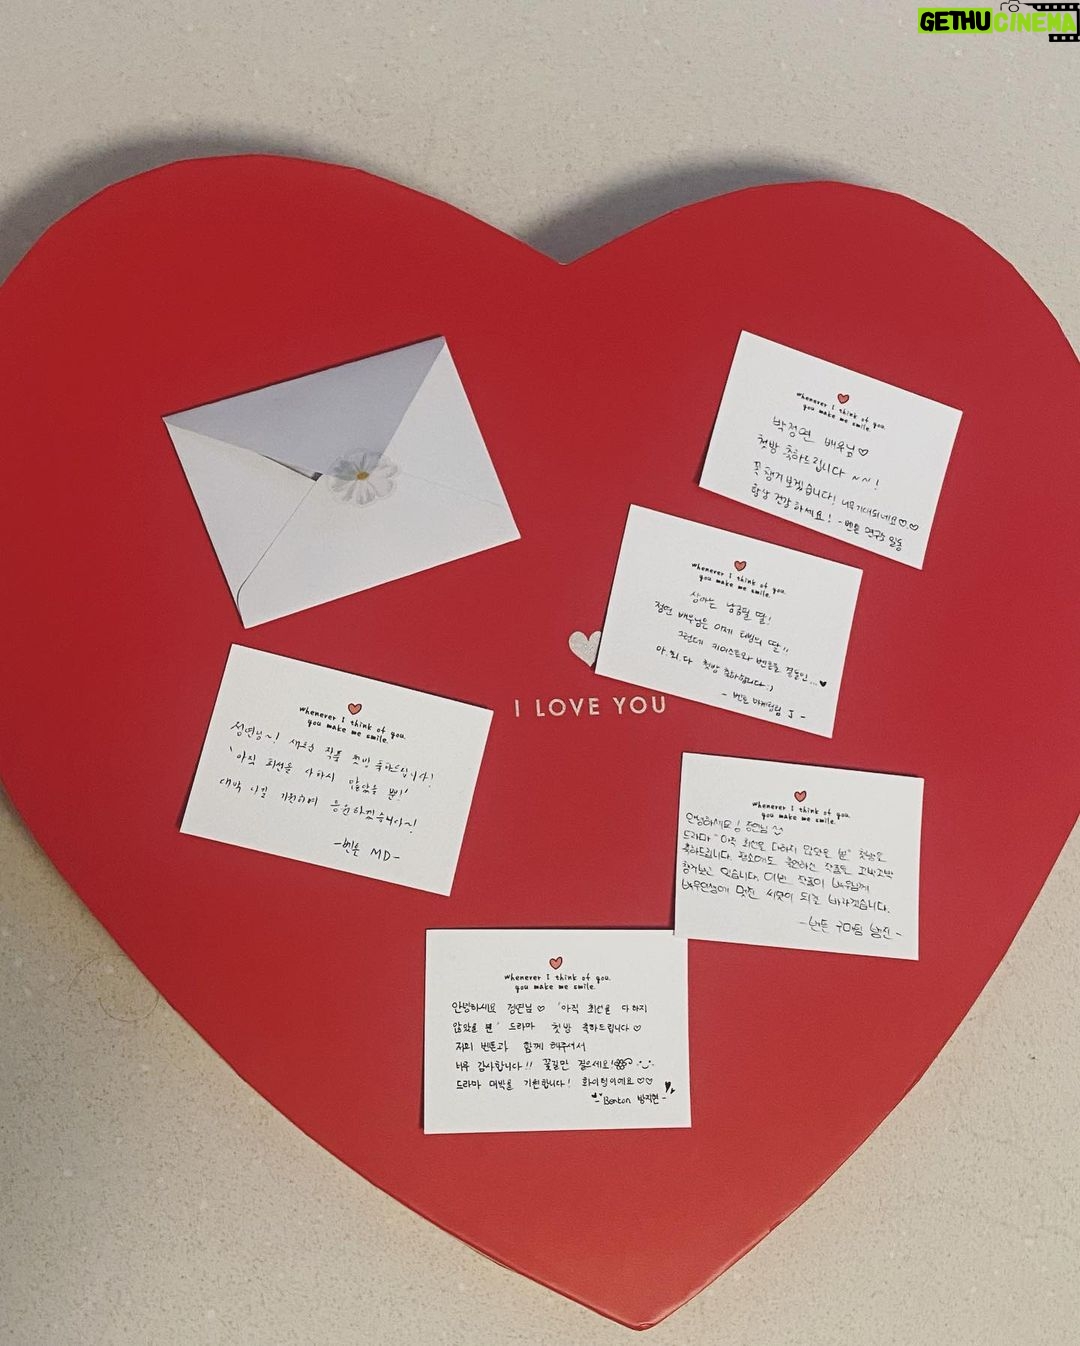 GETHUCINEMA
whenever I think of you.
you make me smile.
박정연 배우님♡
첫방 축하드립니다 ~~!
꼭 챙겨보겠습니다! 너무기대되네요♡.♡
항상 건강하세요! -벤튼 연구소 일동
whenever I think of you.
you make me smile.
남궁필 딸!
정연 배우님은 이제 태평의 딸!!
그런데 키이스트와 벤튼을 곁들인...♥
아.최.다 첫방 축하합니다:)
- 벤튼 마케팅팀 J -
I LOVE YOU
whenever I think of you.
you make me smile.
정연님~! 새로운 작품 첫방 축하드립니다!
'아직 최선을 다하지 않았을 뿐!'
대박 나길 기원하며 응원하겠습니다~!
-벤튼 MD-
whenever I think of you.
you make me smile.
안녕하세요! 정연님
드라마 "아직 최선을 다하지 않았을 뿐" 첫방을
축하드립니다. 평소에도 출연하신 작품들 꼬박꼬박
챙겨보고 있습니다. 이번 작품이 배우님께
배우인생에 멋진 씨앗이 되길 바라겠습니다.
-벤튼
whenever I think of you.
you make me smile.
안녕하세요 정연님 ♡ '아직 최선을 다하지
않았을 뿐' 드라마 첫방 축하드립니다 ♡
저희 벤튼과 함께 해주셔서
너무 감사합니다!! 꽃길만 걸으세요!
드라마 대박을 기원합니다! 화이팅이에요 ♡♡
- Benton 방지현 -